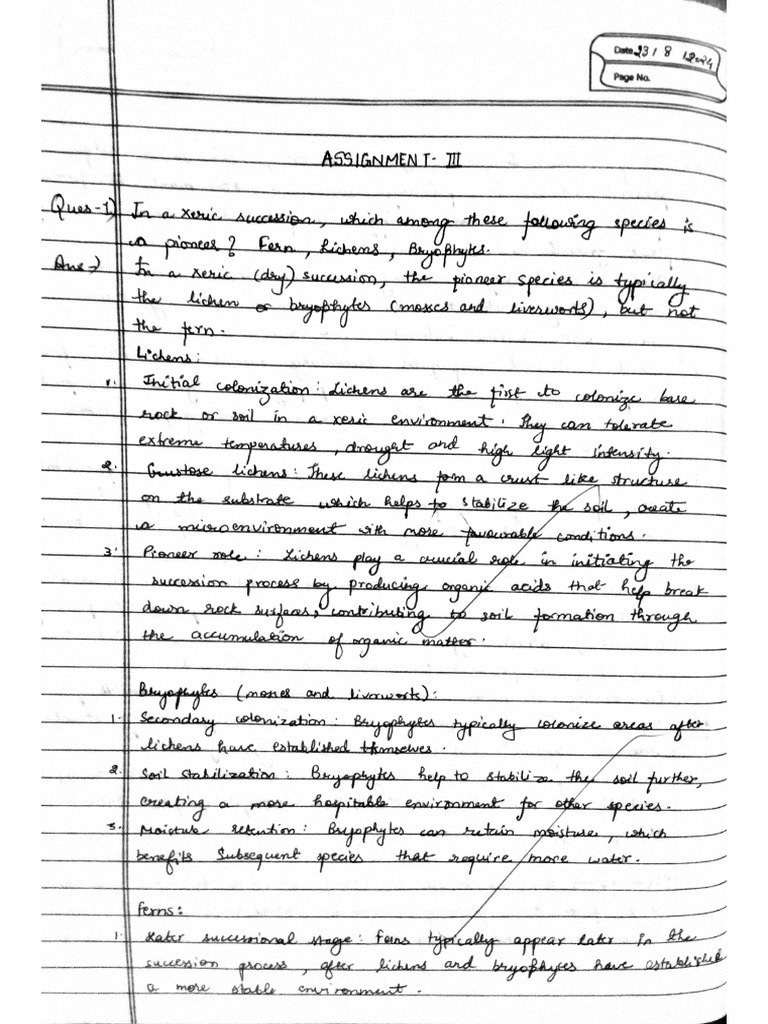 Date 23 / 8 / 2024
Page No.
ASSIGNMENT- III
Ques-1) In a xeric succession, which among these following species is
a pioneer? Fern, Lichens, Bryophytes.
Ans-) In a xeric (dry) succession, the pioneer species is typically
the lichen or bryophytes (mosses and liverworts), but not
the fern.
Lichens:
1. Initial colonization: Lichens are the first to colonize bare
rock or soil in a xeric environment. They can tolerate
extreme temperatures, drought and high light intensity.
2. Crustose lichens: These lichens form a crust like structure
on the substrate which helps to stabilize the soil, create
a microenvironment with more favourable conditions.
3. Pioneer role: Lichens play a crucial role in initiating the
succession process by producing organic acids that help break
down rock surfaces, contributing to soil formation through
the accumulation of organic matter.
Bryophytes (mosses and liverworts):
1. Secondary colonization: Bryophytes typically colonize areas after
lichens have established themselves.
2. Soil stabilization: Bryophytes help to stabilize the soil further,
creating a more hospitable environment for other species.
3. Moisture retention: Bryophytes can retain moisture, which
benefits subsequent species that require more water.
Ferns:
1. Later successional stage: Ferns typically appear later in the
succession process, after lichens and bryophytes have established
a more stable environment.